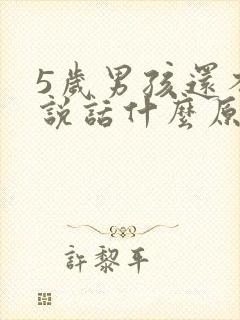 5歲男孩還
說話什麼原
許黎平